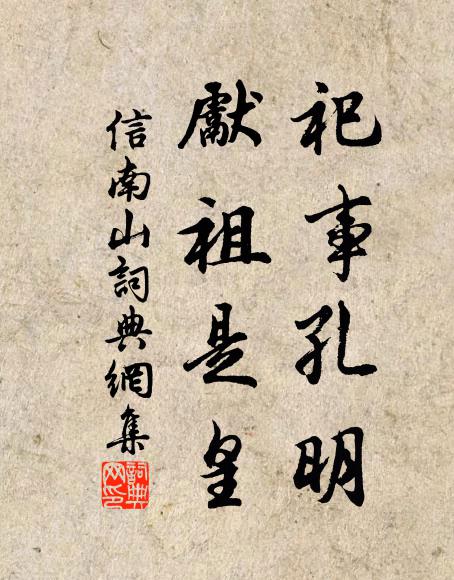 祀事孔明
獻祖是皇
信南山詞典網集
詞典
网印